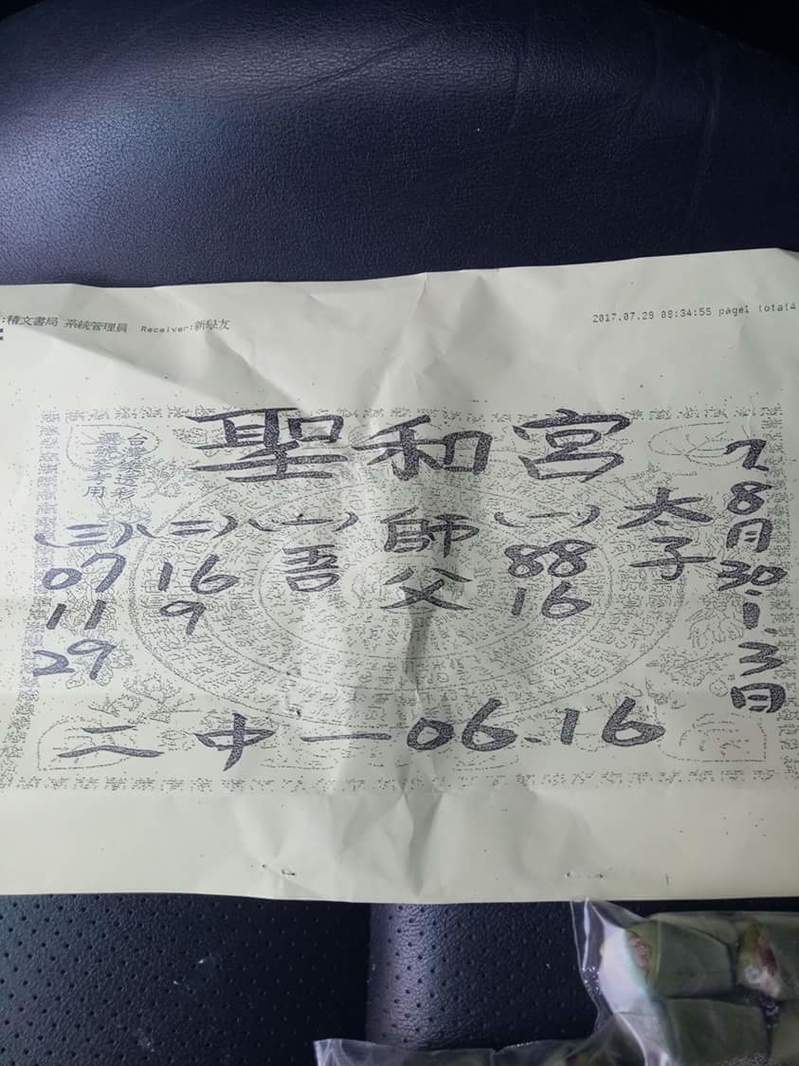 :積文書局 系統管理員 Receiver:新學友
2017.07.29 09:34:55 page1 total
聖和宮
7
8月
30
1.3日
太子
(一)
88
16
師父
(一)
吾
(二)
16
9
(三)
07
11
29
台灣 彩
用
二中一 06.16